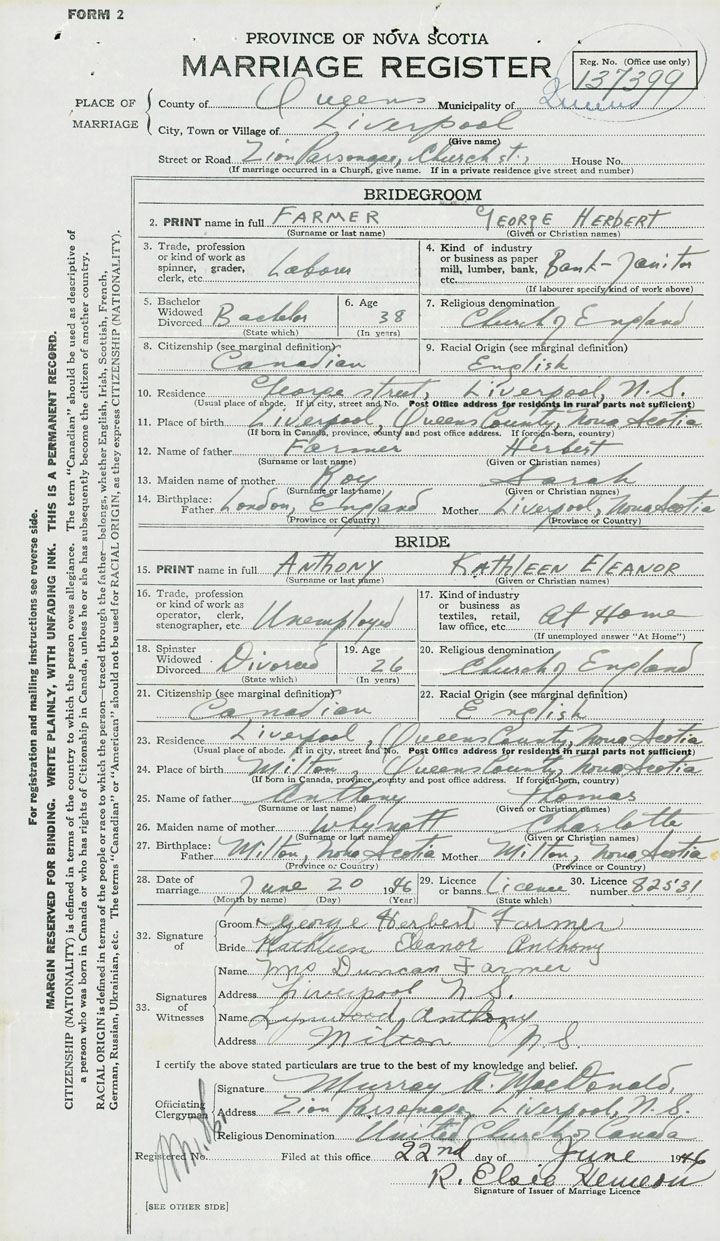 FORM 2
PROVINCE OF NOVA SCOTIA
MARRIAGE REGISTER
Reg. No. (Office use only)
137399
PLACE OF MARRIAGE
County of Queens Municipality of Queens
City, Town or Village of Liverpool
(Give name)
Street or Road Zion Parsonage, Church st., House No.
(If marriage occurred in a Church, give name. If in a private residence give street and number)
BRIDEGROOM
2. PRINT name in full FARMER GEORGE HERBERT
(Surname or last name) (Given or Christian names)
3. Trade, profession or kind of work as spinner, grader, clerk, etc. Laborer
4. Kind of industry or business as paper mill, lumber, bank, etc. Bank-Janitor
(If labourer specify kind of work above)
5. Bachelor Widowed Divorced Bachelor
(State which)
6. Age 38
(In years)
7. Religious denomination
Church of England
8. Citizenship (see marginal definition)
Canadian
9. Racial Origin (see marginal definition)
English
10. Residence George street, Liverpool, N.S.
(Usual place of abode. If in city, street and No. Post Office address for residents in rural parts not sufficient)
11. Place of birth Liverpool, Queens County, Nova Scotia
(If born in Canada, province, county and post office address. If foreign-born, country)
12. Name of father Farmer Herbert
(Surname or last name) (Given or Christian names)
13. Maiden name of mother Roy Sarah
(Surname or last name) (Given or Christian names)
14. Birthplace: Father London, England Mother Liverpool, Nova Scotia
(Province or Country) (Province or Country)
BRIDE
15. PRINT name in full ANTHONY KATHLEEN ELEANOR
(Surname or last name) (Given or Christian names)
16. Trade, profession or kind of work as operator, clerk, stenographer, etc. Unemployed
17. Kind of industry or business as textiles, retail, law office, etc. At Home
(If unemployed answer "At Home")
18. Spinster Widowed Divorced Divorced
(State which)
19. Age 26
(In years)
20. Religious denomination
Church of England
21. Citizenship (see marginal definition)
Canadian
22. Racial Origin (see marginal definition)
English
23. Residence Liverpool, Queens County, Nova Scotia
(Usual place of abode. If in city, street and No. Post Office address for residents in rural parts not sufficient)
24. Place of birth Milton, Queens County, Nova Scotia
(If born in Canada, province, county and post office address. If foreign-born, country)
25. Name of father Anthony Thomas
(Surname or last name) (Given or Christian names)
26. Maiden name of mother Charlotte
(Surname or last name) (Given or Christian names)
27. Birthplace: Father Milton, Nova Scotia Mother Milton, Nova Scotia
(Province or Country) (Province or Country)
28. Date of marriage June 20 1946
(Month by name) (Day) (Year)
29. Licence or banns Licence
(State which)
30. Licence number 82531
32. Signature of
Groom George Herbert Farmer
Bride Kathleen Eleanor Anthony
33. Signatures of Witnesses
Name Mrs Duncan Farmer
Address Liverpool N.S.
Name Lynwood Anthony
Address Milton N.S.
I certify the above stated particulars are true to the best of my knowledge and belief.
Officiating Clergyman
Signature Murray A. MacDonald,
Address Zion Parsonage, Liverpool, N.S.
Religious Denomination United Church of Canada
Registered No. Filed at this office 22nd day of June 1946
R. Elsie Hemeon
Signature of Issuer of Marriage Licence
[SEE OTHER SIDE]
For registration and mailing instructions see reverse side.
MARGIN RESERVED FOR BINDING. WRITE PLAINLY, WITH UNFADING INK. THIS IS A PERMANENT RECORD.
CITIZENSHIP (NATIONALITY) is defined in terms of the country to which the person owes allegiance. The term "Canadian" should be used as descriptive of
a person who was born in Canada or who has rights of Citizenship in Canada, unless he or she has subsequently become the citizen of another country.
RACIAL ORIGIN is defined in terms of the people or race to which the person—traced through the father—belongs, whether English, Irish, Scottish, French,
German, Russian, Ukrainian, etc. The terms "Canadian" or "American" should not be used for RACIAL ORIGIN, as they express CITIZENSHIP (NATIONALITY).